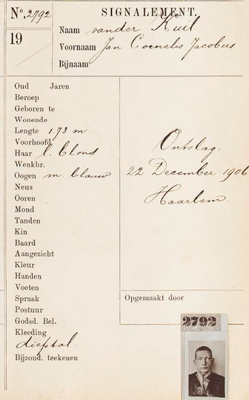 No. 2792 SIGNALEMENT.
19 Naam van der Kuil
Voornaam Jan Cornelis Jacobus
Bijnaam
Oud Jaren
Beroep
Geboren te
Wonende
Lengte 1,73 m
Voorhoofd
Haar l. blond
Wenkbr.
Oogen m. blauw
Neus
Ooren
Mond
Tanden
Kin
Baard
Aangezicht
Kleur
Handen
Voeten
Spraak
Postuur
Godsd. Bel.
Kleeding
diefstal
Bijzond. teekenen
Ontslag
22 December 1906
Haarlem
Opgemaakt door
2792